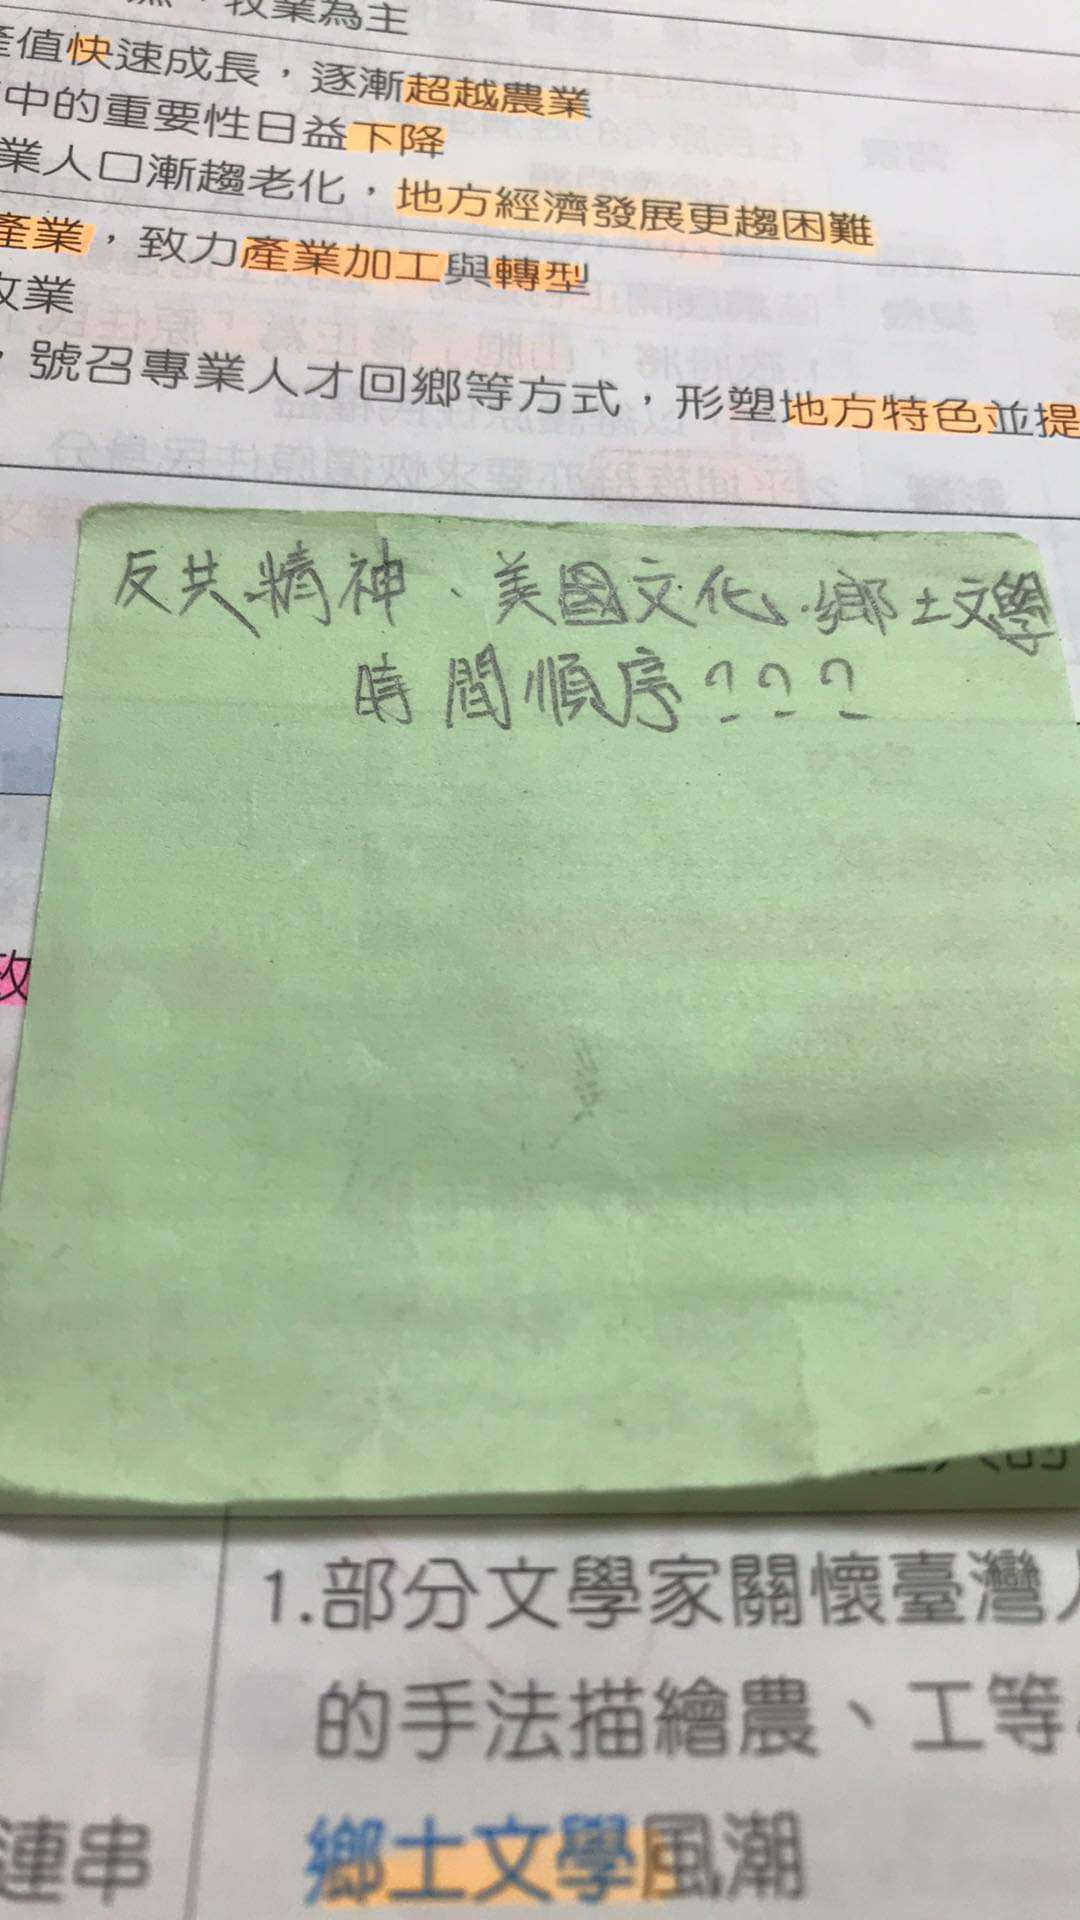 牧業為主
產值快速成長，逐漸超越農業
中的重要性日益下降
業人口漸趨老化，地方經濟發展更趨困難
產業，致力產業加工與轉型
牧業
，號召專業人才回鄉等方式，形塑地方特色並提
反共精神、美國文化、鄉土文學
時間順序???
1.部分文學家關懷臺灣
的手法描繪農、工等
連串
鄉土文學風潮